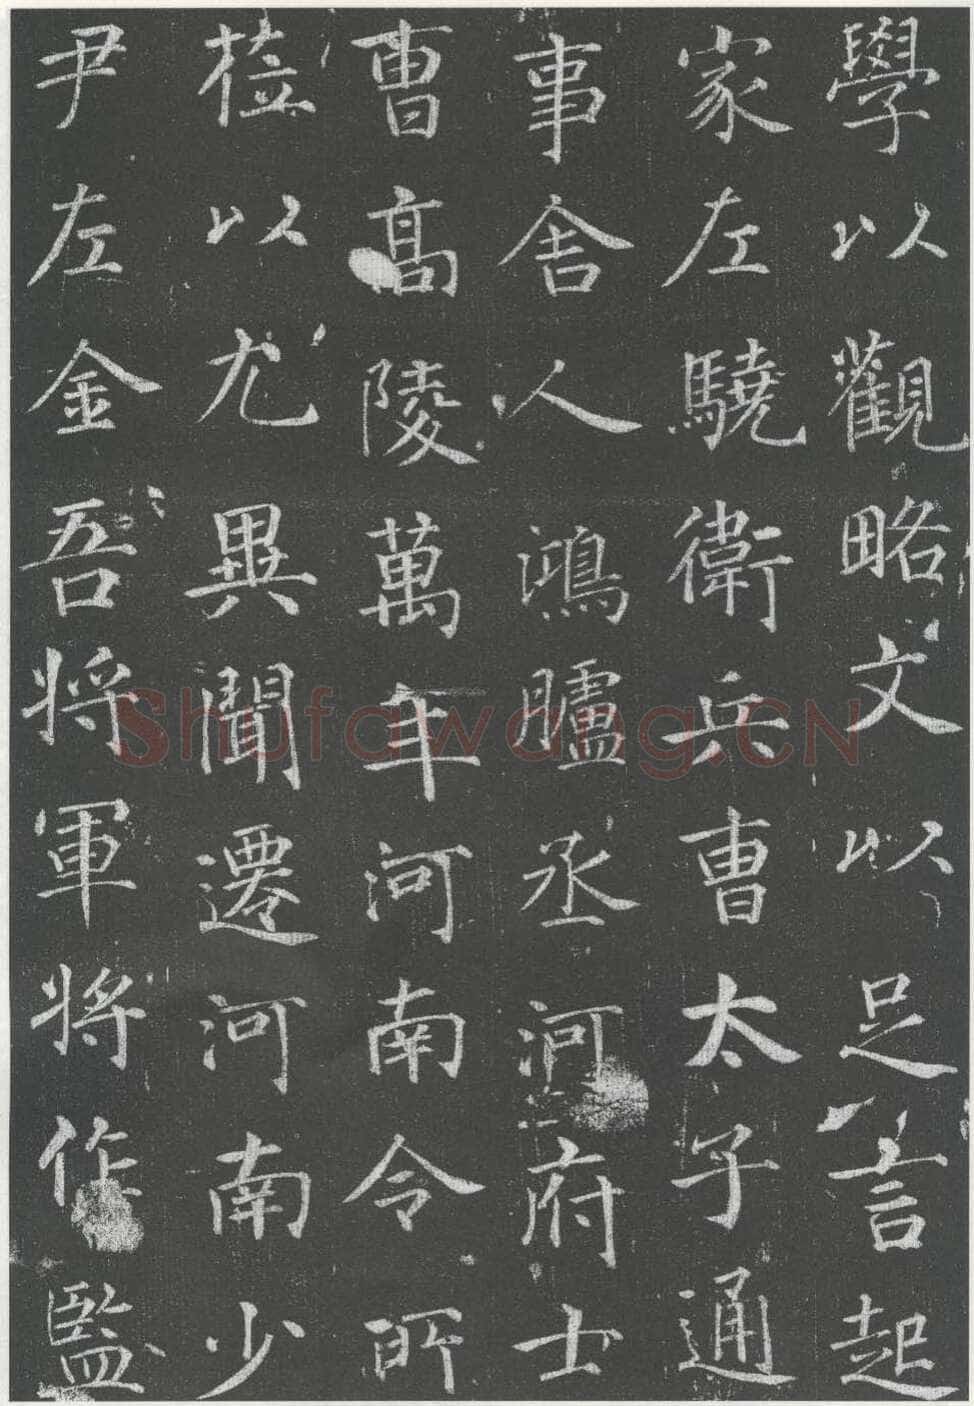 學以觀略文以足言起
家左驍衛兵曹太子通
事舍人鴻臚丞河府士
曹高陵萬年河南令所
莅以尤異聞遷河南少
尹左金吾将軍将作監
Shufawang.CN